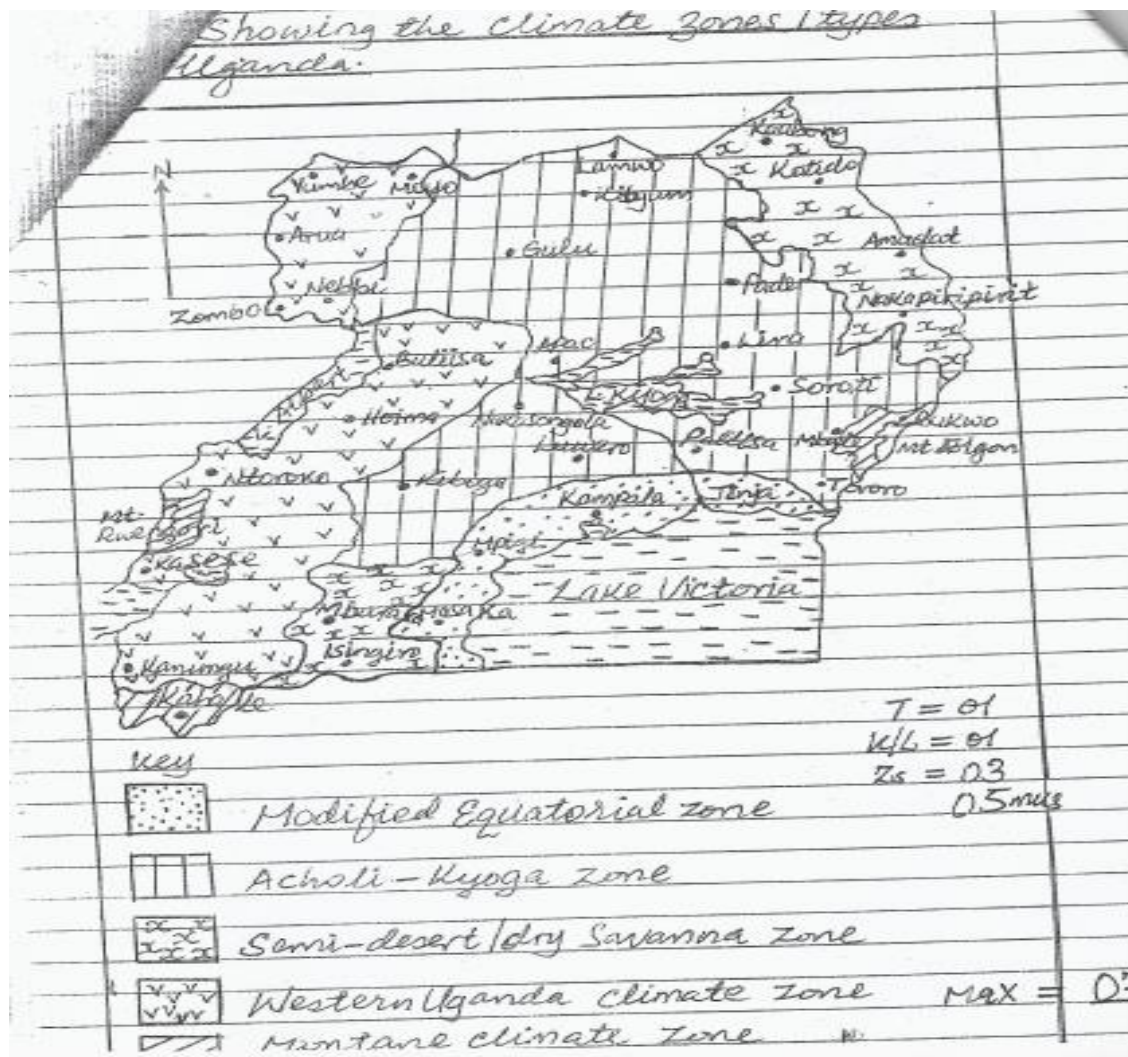 Showing the Climate zones / types
Uganda.
N
Kaabong
Lamwo
Kotido
Yumbe Moyo
Kitgum
Arua
Gulu
Amudat
Pader
Nebbi
Nakapiripirit
Zombo
Apac
Lira
Buliisa
L. Albert
Soroti
L. Kyoga
Hoima
Nakasongola
Bukwo
Luwero
Pallisa Mbale
Mt Elgon
Ntoroko
Kiboga
Kampala
Jinja
Tororo
Mt. Rwenzori
Mpigi
Kasese
Lake Victoria
Mbarara
Masaka
Isingiro
Kanungu
Kabale
T = 01
K/L = 01
Zs = 03
05mks
Key
Modified Equatorial zone
Acholi-Kyoga zone
Semi-desert/dry Savanna zone
Western Uganda climate zone
Max =
Montane climate zone